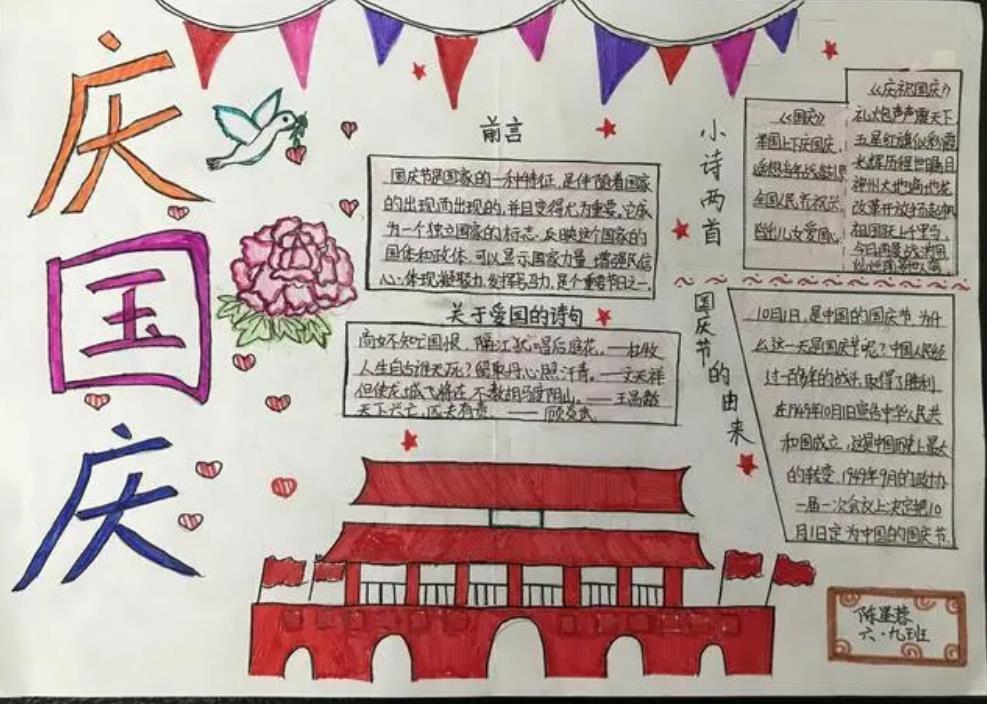 庆
国
庆
前言
国庆节是国家的一种特征,是伴随着国家
的出现而出现的,并且变得尤为重要。它成
为一个独立国家的标志,反映这个国家的
国体和政体,可以显示国家力量,增强民信
心,体现凝聚力,发挥号召力,是个重要节日之一
关于爱国的诗句
商女不知亡国恨,隔江犹唱后庭花。——杜牧
人生自古谁无死?留取丹心照汗青。——文天祥
但使龙城飞将在,不教胡马度阴山。——王昌龄
天下兴亡,匹夫有责。——顾炎武
小诗两首
《国庆》
举国上下庆国庆,
遥想当年战
全国人民齐祝
儿女爱国心
《庆祝国庆》
礼炮声声震天下
五星红旗似彩霞
光辉历程世瞩目
神州大地遍地花
改革开放扬起帆
祖国跃上千里马
今日
国庆节的由来
10月1日,是中国的国庆节 为什
么这一天是国庆节呢?中国人民经
过一百多年的战斗,取得了胜利
在1949年10月1日宣告中华人民共
和国成立,这是中国历史上最大
的转变,1949年9月的政协
一届一次会议上决定把10
月1日定为中国的国庆节.
陈墨蓉
六·九班